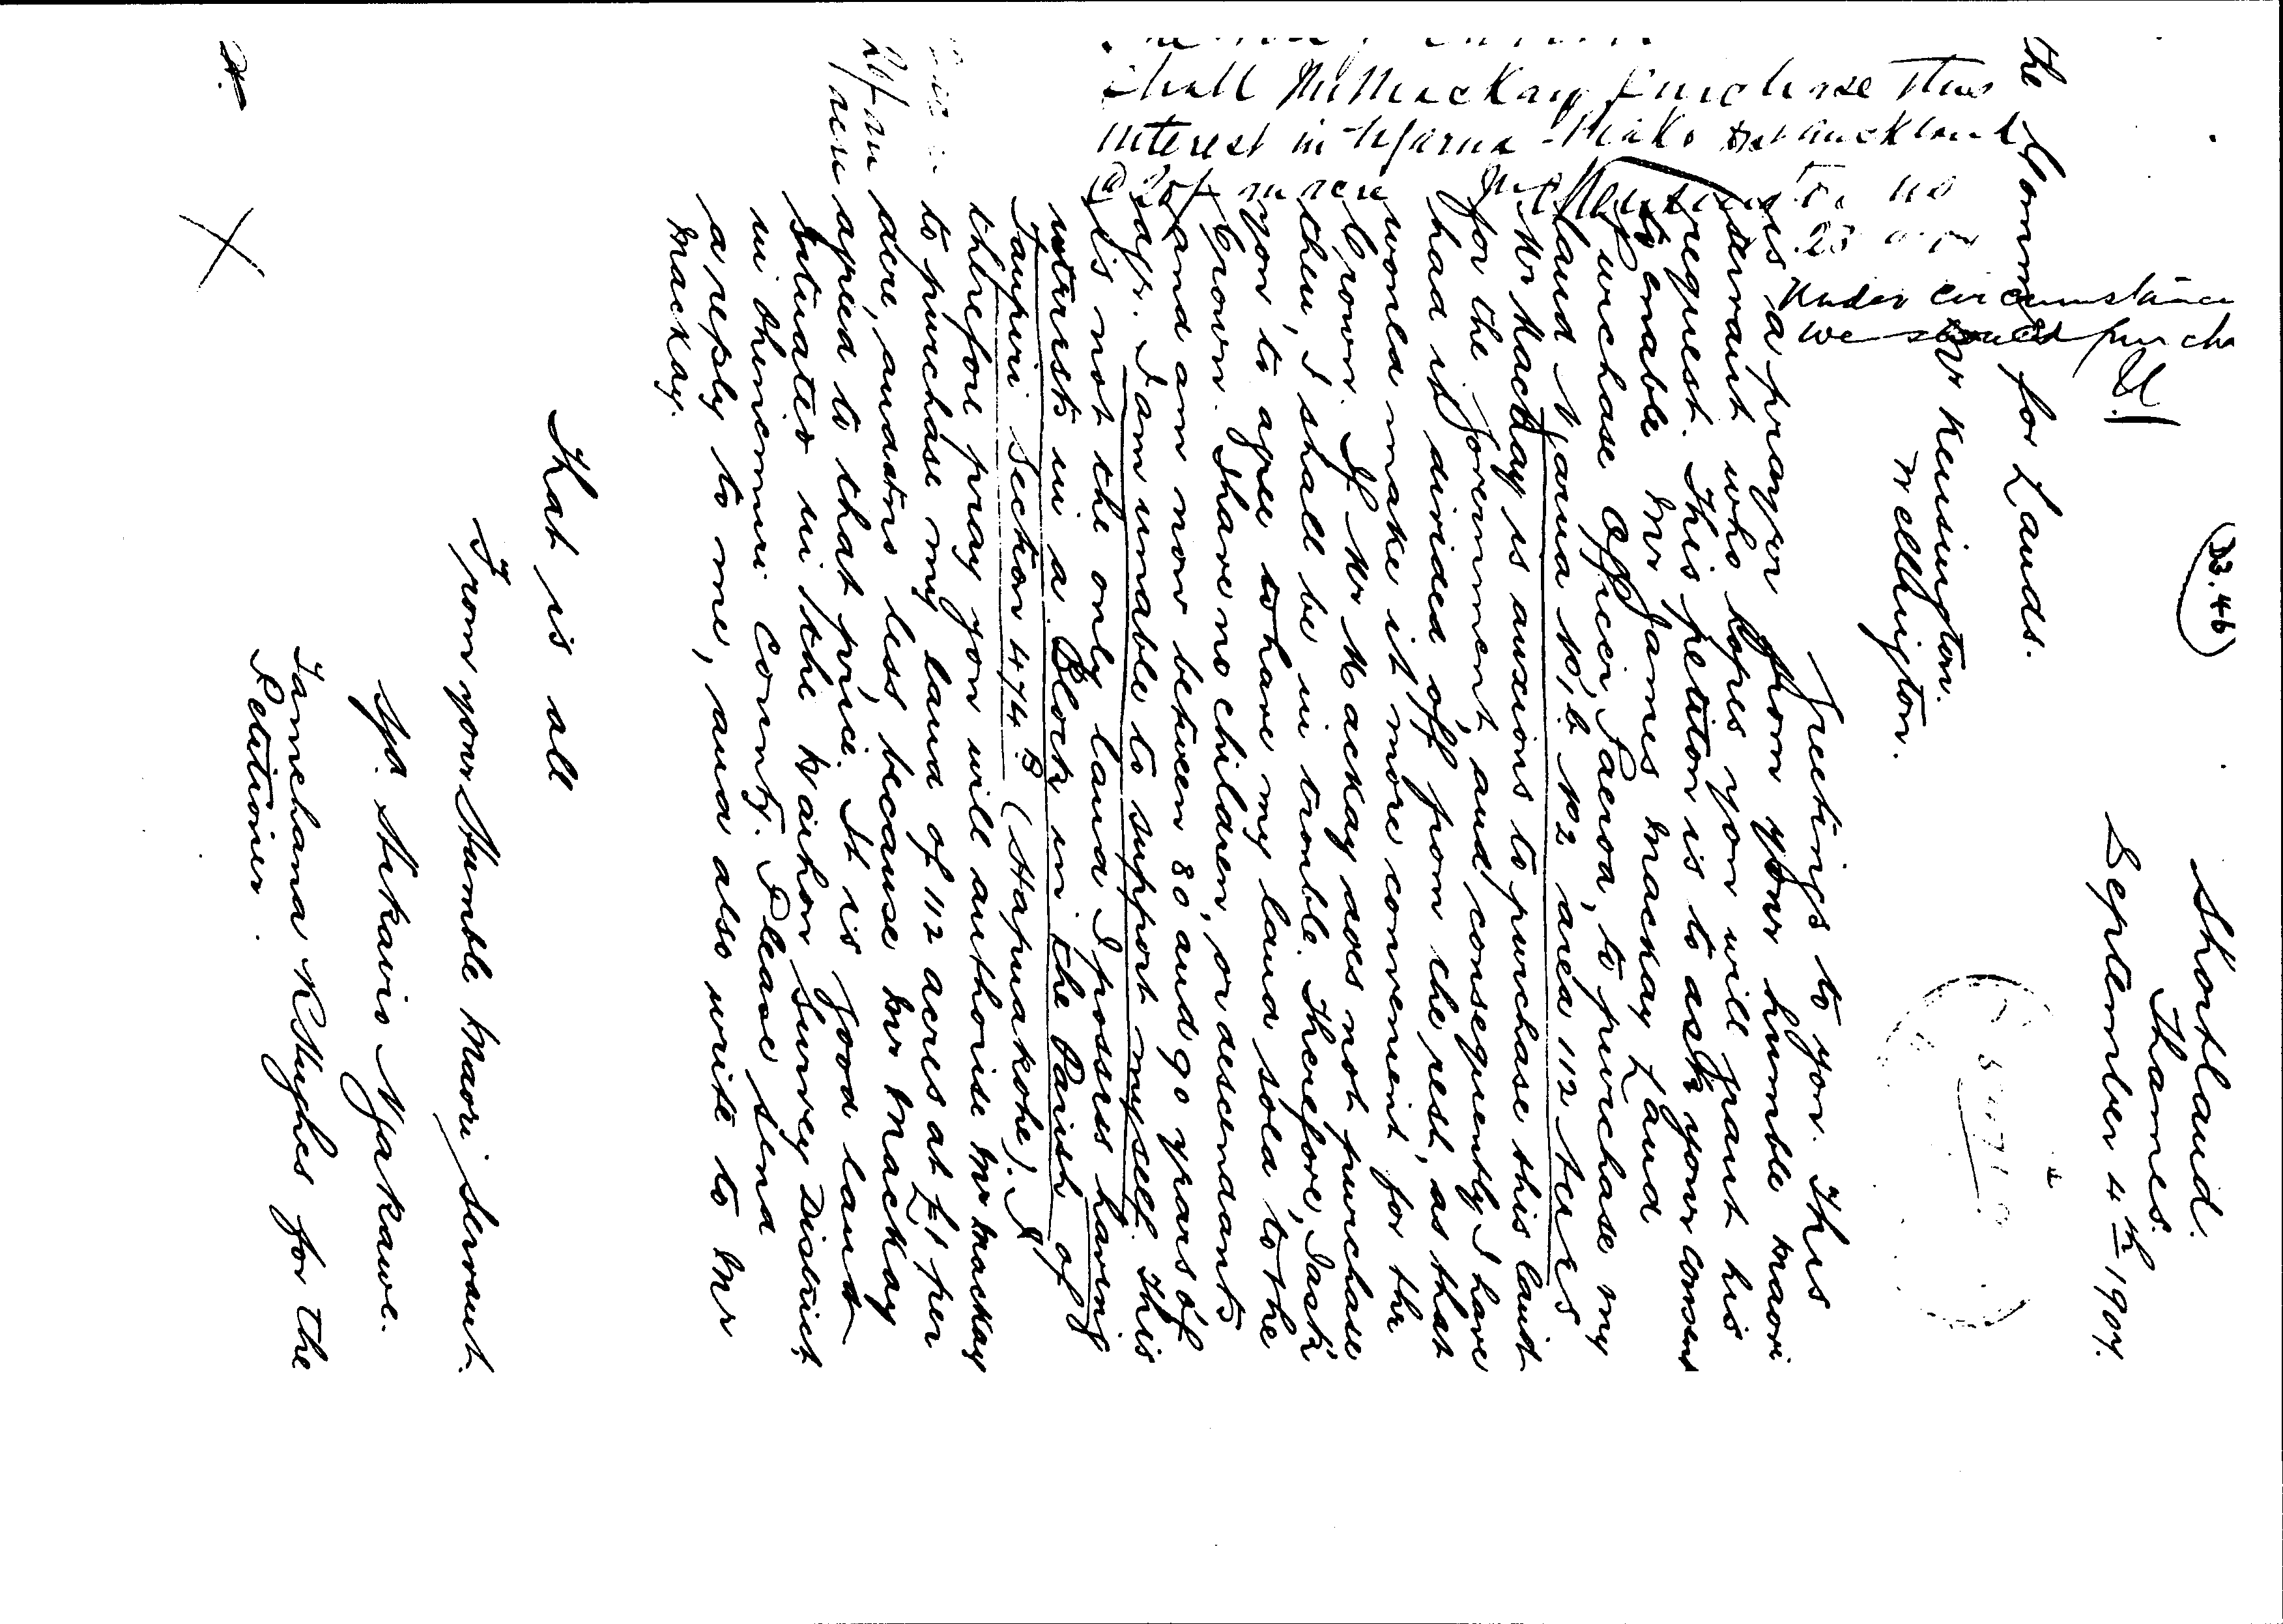 33.46
Shortland.
Thames.
September 4th 1907.
The Comm for Lands.
Mr Kensington.
Wellington.
Greetings to you. This
is a prayer from your humble maori
servant who hopes you will grant his
request. This petition is to ask your consent
to enable Mr James Mackay Land
Purchase Officer, Paeroa, to purchase my
land Ngarua No 2 area 112 acres
Mr Mackay is anxious to purchase this land
for the Government, and consequently I have
had it divided off from the rest, as that
would make it more convenient for the
Crown. If Mr Mackay does not purchase
then, I shall be in trouble. Therefore, I ask
you to agree to have my land sold to the
Crown. I have no children, or descendants
and am now between 80 and 90 years of
age. I am unable to support myself. This
is not the only land I possess having
interests in a Block in the Parish of
Taupiri Section 474 B (Hapuakohe). I
therefore pray you will authorise Mr Mackay
to purchase my land of 112 acres at £1 per
acre, and at no less because Mr Mackay
agreed to that price. It is good land
situated in the Waihou Survey District
in Ohinemuri County. Please send
a reply to me, and also write to Mr
Mackay.
That is all
From your Humble Maori Servant.
Sgd. Herawiro Ngakawe.
Tamehana R Hughes for the
Petitioner.
shall Mr Mackay purchase this
interest in Ngarua
@ 20/- an acre
Under circumstance
we should purcha